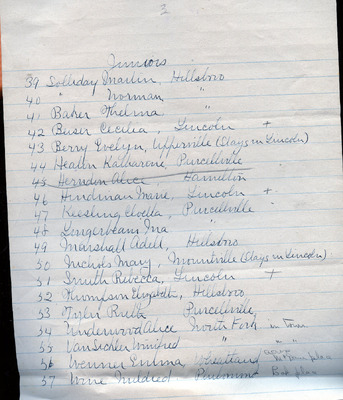 3
Juniors
39 Solliday Marlin, Hillsboro
40 " Norman, "
41 Baker Thelma "
42 Buser Cecilia, Lincoln +
43 Berry Evelyn, Upperville (Stays in Lincoln)
44 Heaton Katharine, Purcellville
45 Herndon Alice Hamilton
46 Hindman Marie, Lincoln +
47 Keesling Louella, Purcellville
48 Lingerbeam Ina "
49 Marshall Adell, Hillsboro
50 Nichols Mary, Mountville (Stays in Lincoln)
51 Smith Rebecca, Lincoln +
52 Thompson Elizabeth, Hillsboro
53 Tyler Ruth Purcellville
54 Underwood Alice North Fork in town
55 VanSickler Winifred " " "
56 Wenner Emma Wheatland
57 Wire Mildred Paeonian